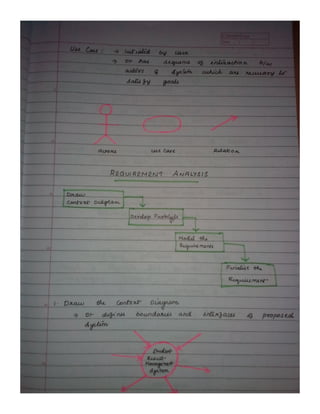 Use Case: → initiated by user
→ It has degrams of interaction b/w
actors & system which are necessary to
satisfy goals
Actors
use case
Relation
REQUIREMENT ANALYSIS
Draw
Context Diagram
Develop Prototype
Model the
Requirements
Finalise the
Requirement
1. Draw the Context Diagram
→ It defines boundaries and interfaces of proposed
system
Student
Result
Management
System